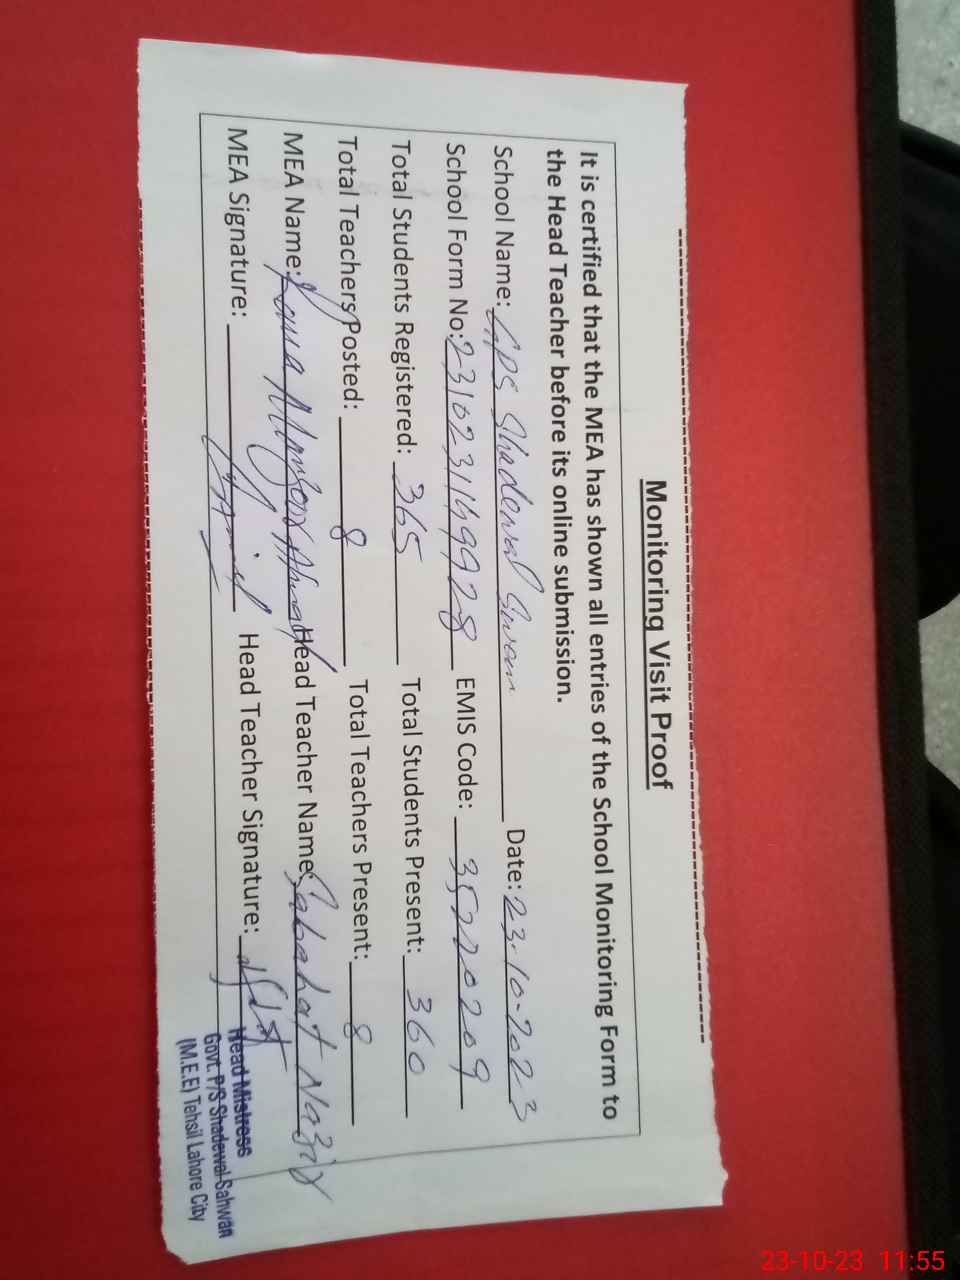 Monitoring Visit Proof
It is certified that the MEA has shown all entries of the School Monitoring Form to
the Head Teacher before its online submission.
School Name: GPS Shadewal Swan Date: 23-10-2023
School Form No: EMIS Code: 35220209
Total Students Registered: 365 Total Students Present: 360
Total Teachers Posted: 8 Total Teachers Present: 8
MEA Name: Rana Manzoor Ahmad Head Teacher Name: Sabahat Nazir
MEA Signature: Head Teacher Signature:
Head Mistress
Govt. P/S Shadewal Sahwan
(M.E.E) Tehsil Lahore City
23-10-23 11:55